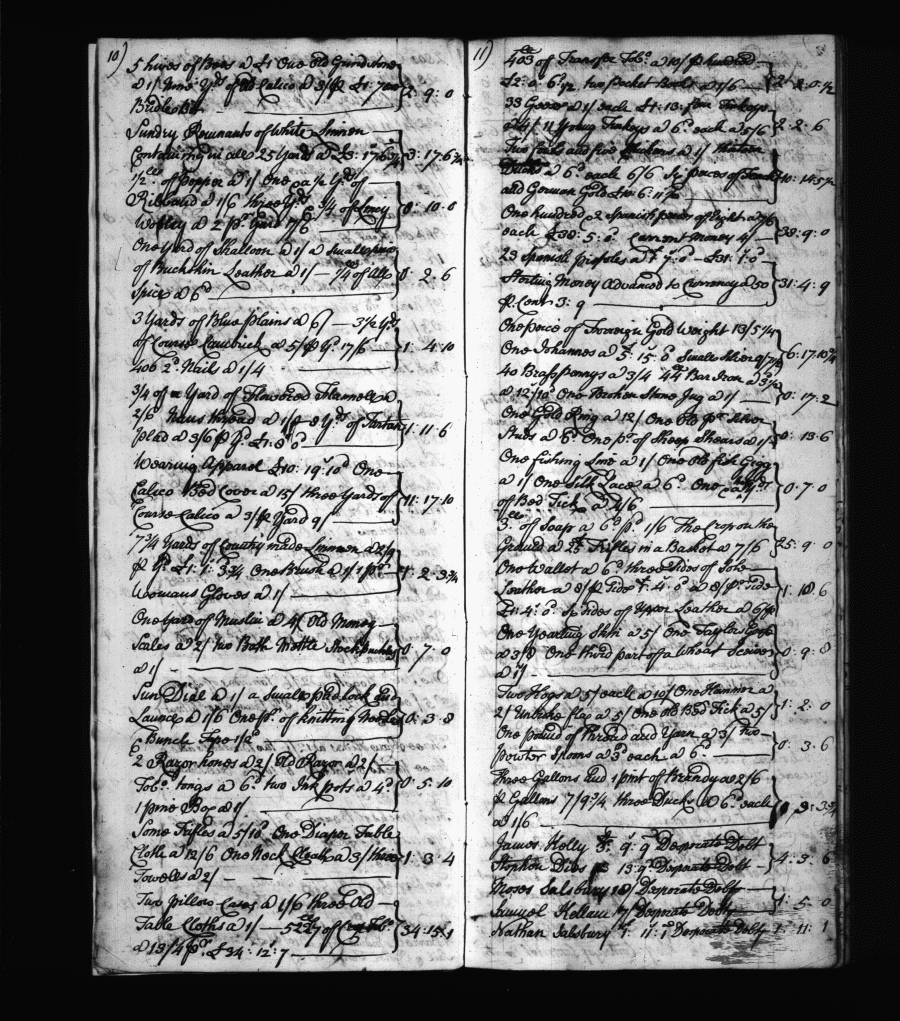 10)
5 hives of Bees a £1 One Old Grind stone
a 1/ Nine Yds of Old Calico a 3/ £1: 7: 0
Bridle Bit 2: 9: 0
Sundry Remnants of White Linnen
Containing in all 25 Yards a £3: 17: 6¾ 3: 17: 6¾
½ of Pepper a 1/ One
Ribband a 1/6 three Yds ¾ of Linsey
Wolsey a 2 pr Yard 7/6 0: 10: 0
One Yard of Shalloon a 1/ a Small
of Buckskin Leather a 1/ ¼ of All
Spice a 6d 0: 2: 6
3 Yards of Blue Plains a 6/ 3½ Yds
of Course a 5/ p Yd 17/6
400 2d Nails a 1/4 1: 4: 10
3/4 of a Yard of Flowered Flannell a
2/6 thread a 1/ 8 Yds of Tartan
Plad a 3/6 p Yd £1: 8: 0 1: 11: 6
Wearing Apparel £10: 19: 10 One
Calico Bed Cover a 15/ three Yards of
Course Calico a 3/ p Yard 9/ 11: 17: 10
7¾ Yards of Country made Linnen a 2/9
p Yd £1: 1: 3¾ One Brush a 1/ 1 pr
Womans Gloves a 1/ 1: 2: 3¾
One Yard of Muslin a 4/ Old Money
Scales a 2/ two Bath Mettle Stock
a 1/ 0: 7: 0
Sun Dial a 1/ a Small padlock and
a 1/6 One pr of knitting Needles
Bunch Tape 0: 3: 8
2 Razor hones a 2/ Old Razor a 2/
Tobo tongs a 6d two Ink pots a 4d
1 pine Box a 1/ 0: 5: 10
Some Trifles a 5/10 One Diaper Table
Cloth a 12/6 One Neck Cloath a 3/ three
Towells a 2/ 1: 3: 4
Two pillow Cases a 1/6 three Old
Table Cloths a 1/ 5227 of Crop Tobo
a 13/4 pr £34: 12: 7 34: 15: 1
11)
403 of Transfer Tobo a 10/ p hundred
£2: 0: 6½ two Pocket Books a 1/6 2: 2: 0½
33 Geese a 1/ each £1: 13: four Turkeys
11 Young Turkeys a 6d each a 5/6 2: 2: 6
Two and five Chickens a 1/ thirteen
Ducks a 6d each 6/6 Six pieces of French
and German Gold £10: 6: 11½ 10: 14: 5½
One hundred & 2 Spanish pieces of Eight a 7/6
each £38: 5: 0 Current Money 4/ 38: 9: 0
23 Spanish Pistoles a £31: 7: 0
Sterling Money Advanced to Currency a 50
p Cent 3: 9 31: 4: 9
One piece of Foreign Gold Weight 13/5¼
One Johannes a 5: 15: 0 Small Silver 9/7¼ 6: 17: 10¾
40 Brass pennys a 3/4 44 Bar Iron a 3½
a 12/10 One Broken Stone Jug a 1/ 0: 17: 2
One Gold Ring a 12/ One Old pr Silver
Studs a 6d One pr of Sheep Shears a 1/ 0: 13: 6
One fishing Line a 1/ One Old fish Gigg
a 1/ One Silk Lace a 6d One
of Bed Tick a 2/6 0: 7: 0
3 of Soap a 6d p 1/6 The Crop on the
Ground a 25 Trifles in a Basket a 7/6 25: 9: 0
One Wallet a 6d three Sides of Sole
Leather a 8/ p Side £1: 4: 0 a 8/ pr Side
£1: 4: 0 Six Sides of Upper Leather a 6/ p 1: 10: 6
One Yearling Skin a 5/ One Taylors Goose
a 3/8 One third part of a Wheat
a 1/ 0: 9: 8
Two Hogs a 5/ each a 10/ One Hammer a
2/ flag a 5/ One Old Bed Tick a 5/ 1: 2: 0
One pound of Thread and Yarn a 3/ two
pewter Spoons a 3d each a 6d 0: 3: 6
Three Gallons and 1 pint of Brandy a 2/6
p Gallons 7/9¾ three Ducks a 6d each
a 1/6 9: 3¾
James Kelly 3: 9: 9 Desperate Debt
Stephen Dies 13: 9 Desperate Debt 4: 3: 6
Moses Salsbury 18/ Desperate Debt
Samuel Kellam 7/ Desperate Debt 1: 5: 0
Nathan Salsbury 1: 11: 1 Desperate Debt 1: 11: 1